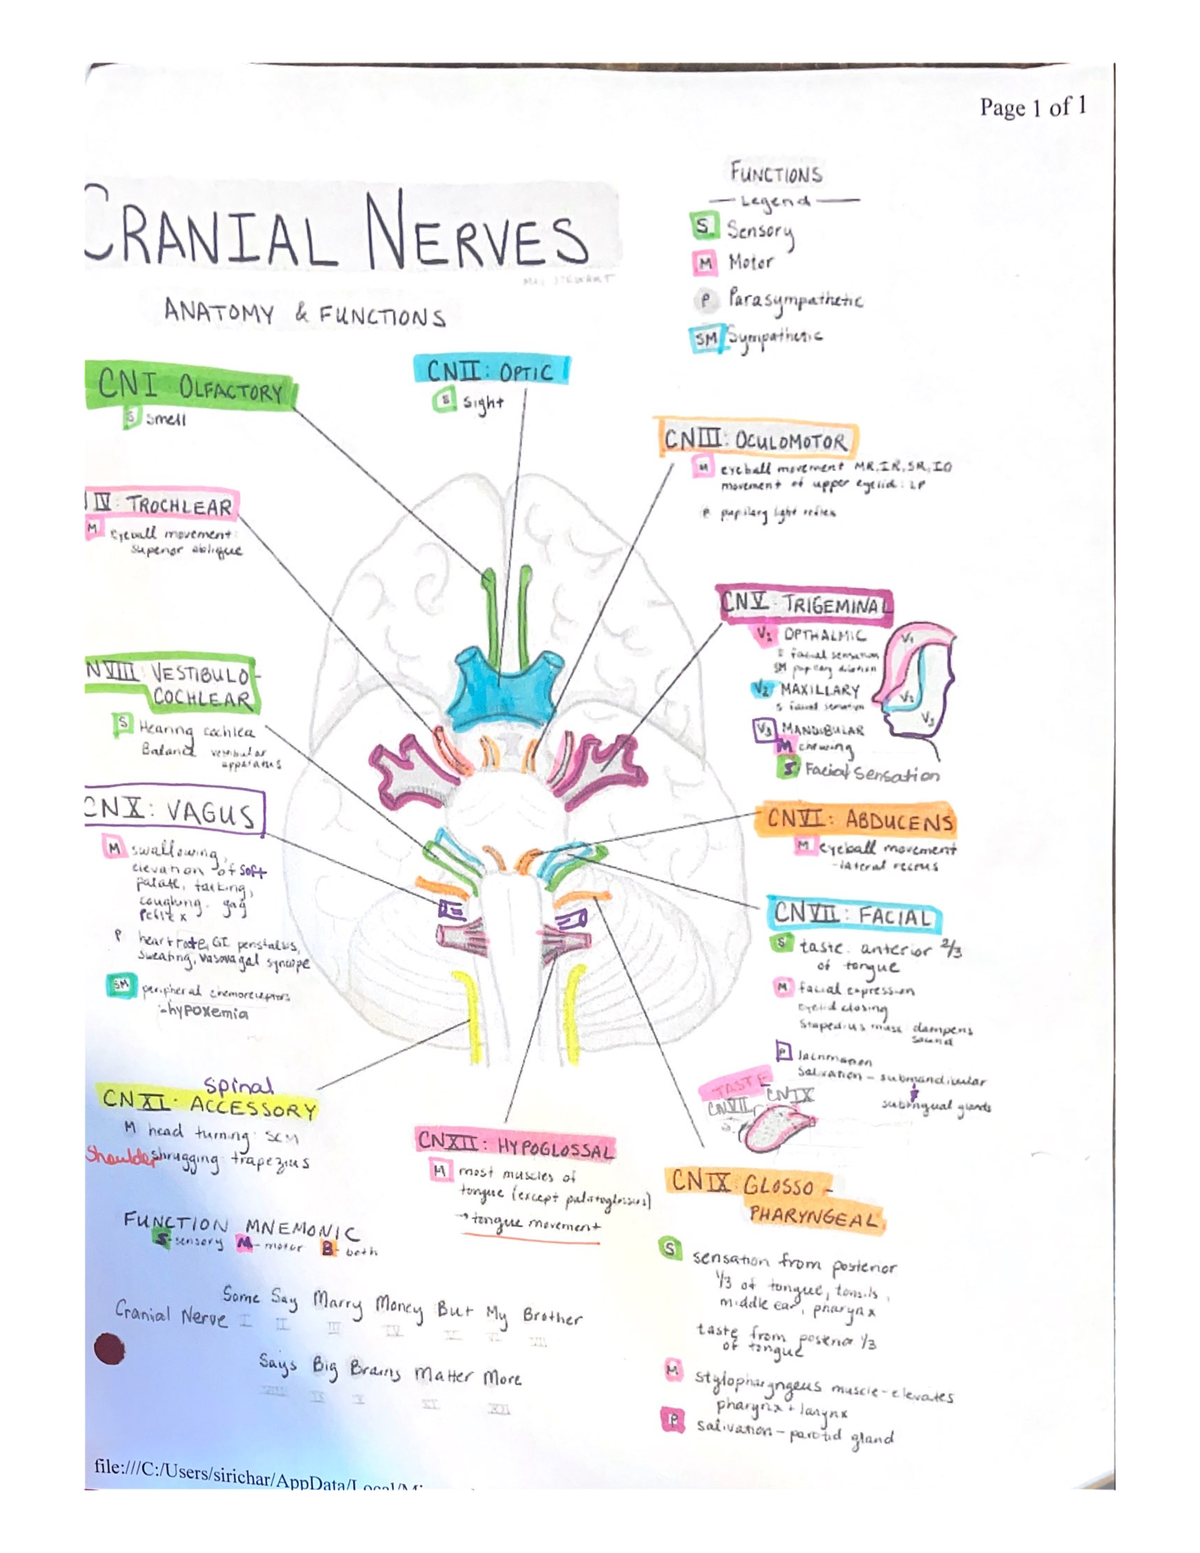 Page 1 of 1
CRANIAL NERVES
ANATOMY & FUNCTIONS
FUNCTIONS
Legend
S Sensory
M Motor
P Parasympathetic
SM Sympathetic
CNI OLFACTORY
S smell
CNII: OPTIC
S sight
CNIII: OCULOMOTOR
M eyeball movement MR, IR, SR, IO
movement of upper eyelid: LP
P pupilary light reflex
IV: TROCHLEAR
M Eyeball movement:
superior oblique
CNV: TRIGEMINAL
V1 OPTHALMIC
S facial sensation
SM pupilary dilation
V2 MAXILLARY
S facial sensation
V3 MANDIBULAR
M chewing
S Facial Sensation
V1
V2
V3
NVIII: VESTIBULO-
COCHLEAR
S Hearing cochlea
Balance vestibular
apparatus
CNX: VAGUS
M swallowing,
elevation of soft
palate, talking,
coughing, gag
reflex
P heart rate, GI peristalsis,
sweating, vasovagal syncope
SM peripheral chemoreceptors
-hypoxemia
CNVI: ABDUCENS
M eyeball movement
-lateral rectus
CNVII: FACIAL
S taste. anterior 2/3
of tongue
M facial expression
eyelid closing
Stapedius musc dampens
sound
P lacrimation
Salivation - submandibular
sublingual glands
TASTE
CNVII CNIX
spinal
CNXI: ACCESSORY
M head turning: SCM
Shoulder shrugging: trapezius
CNXII: HYPOGLOSSAL
M most muscles of
tongue (except palatoglossus)
→ tongue movement
CNIX: GLOSSO-
PHARYNGEAL
S sensation from posterior
1/3 of tongue, tonsils,
middle ear, pharynx
taste from posterior 1/3
of tongue
M stylopharyngeus muscle-elevates
pharynx + larynx
P salivation - parotid gland
FUNCTION MNEMONIC
S-sensory M-motor B-both
Some Say Marry Money But My Brother
Cranial Nerve I II III IV V VI VII
Says Big Brains Matter More
VIII IX X XI XII
file:///C:/Users/sirichar/AppData/Local/Mi